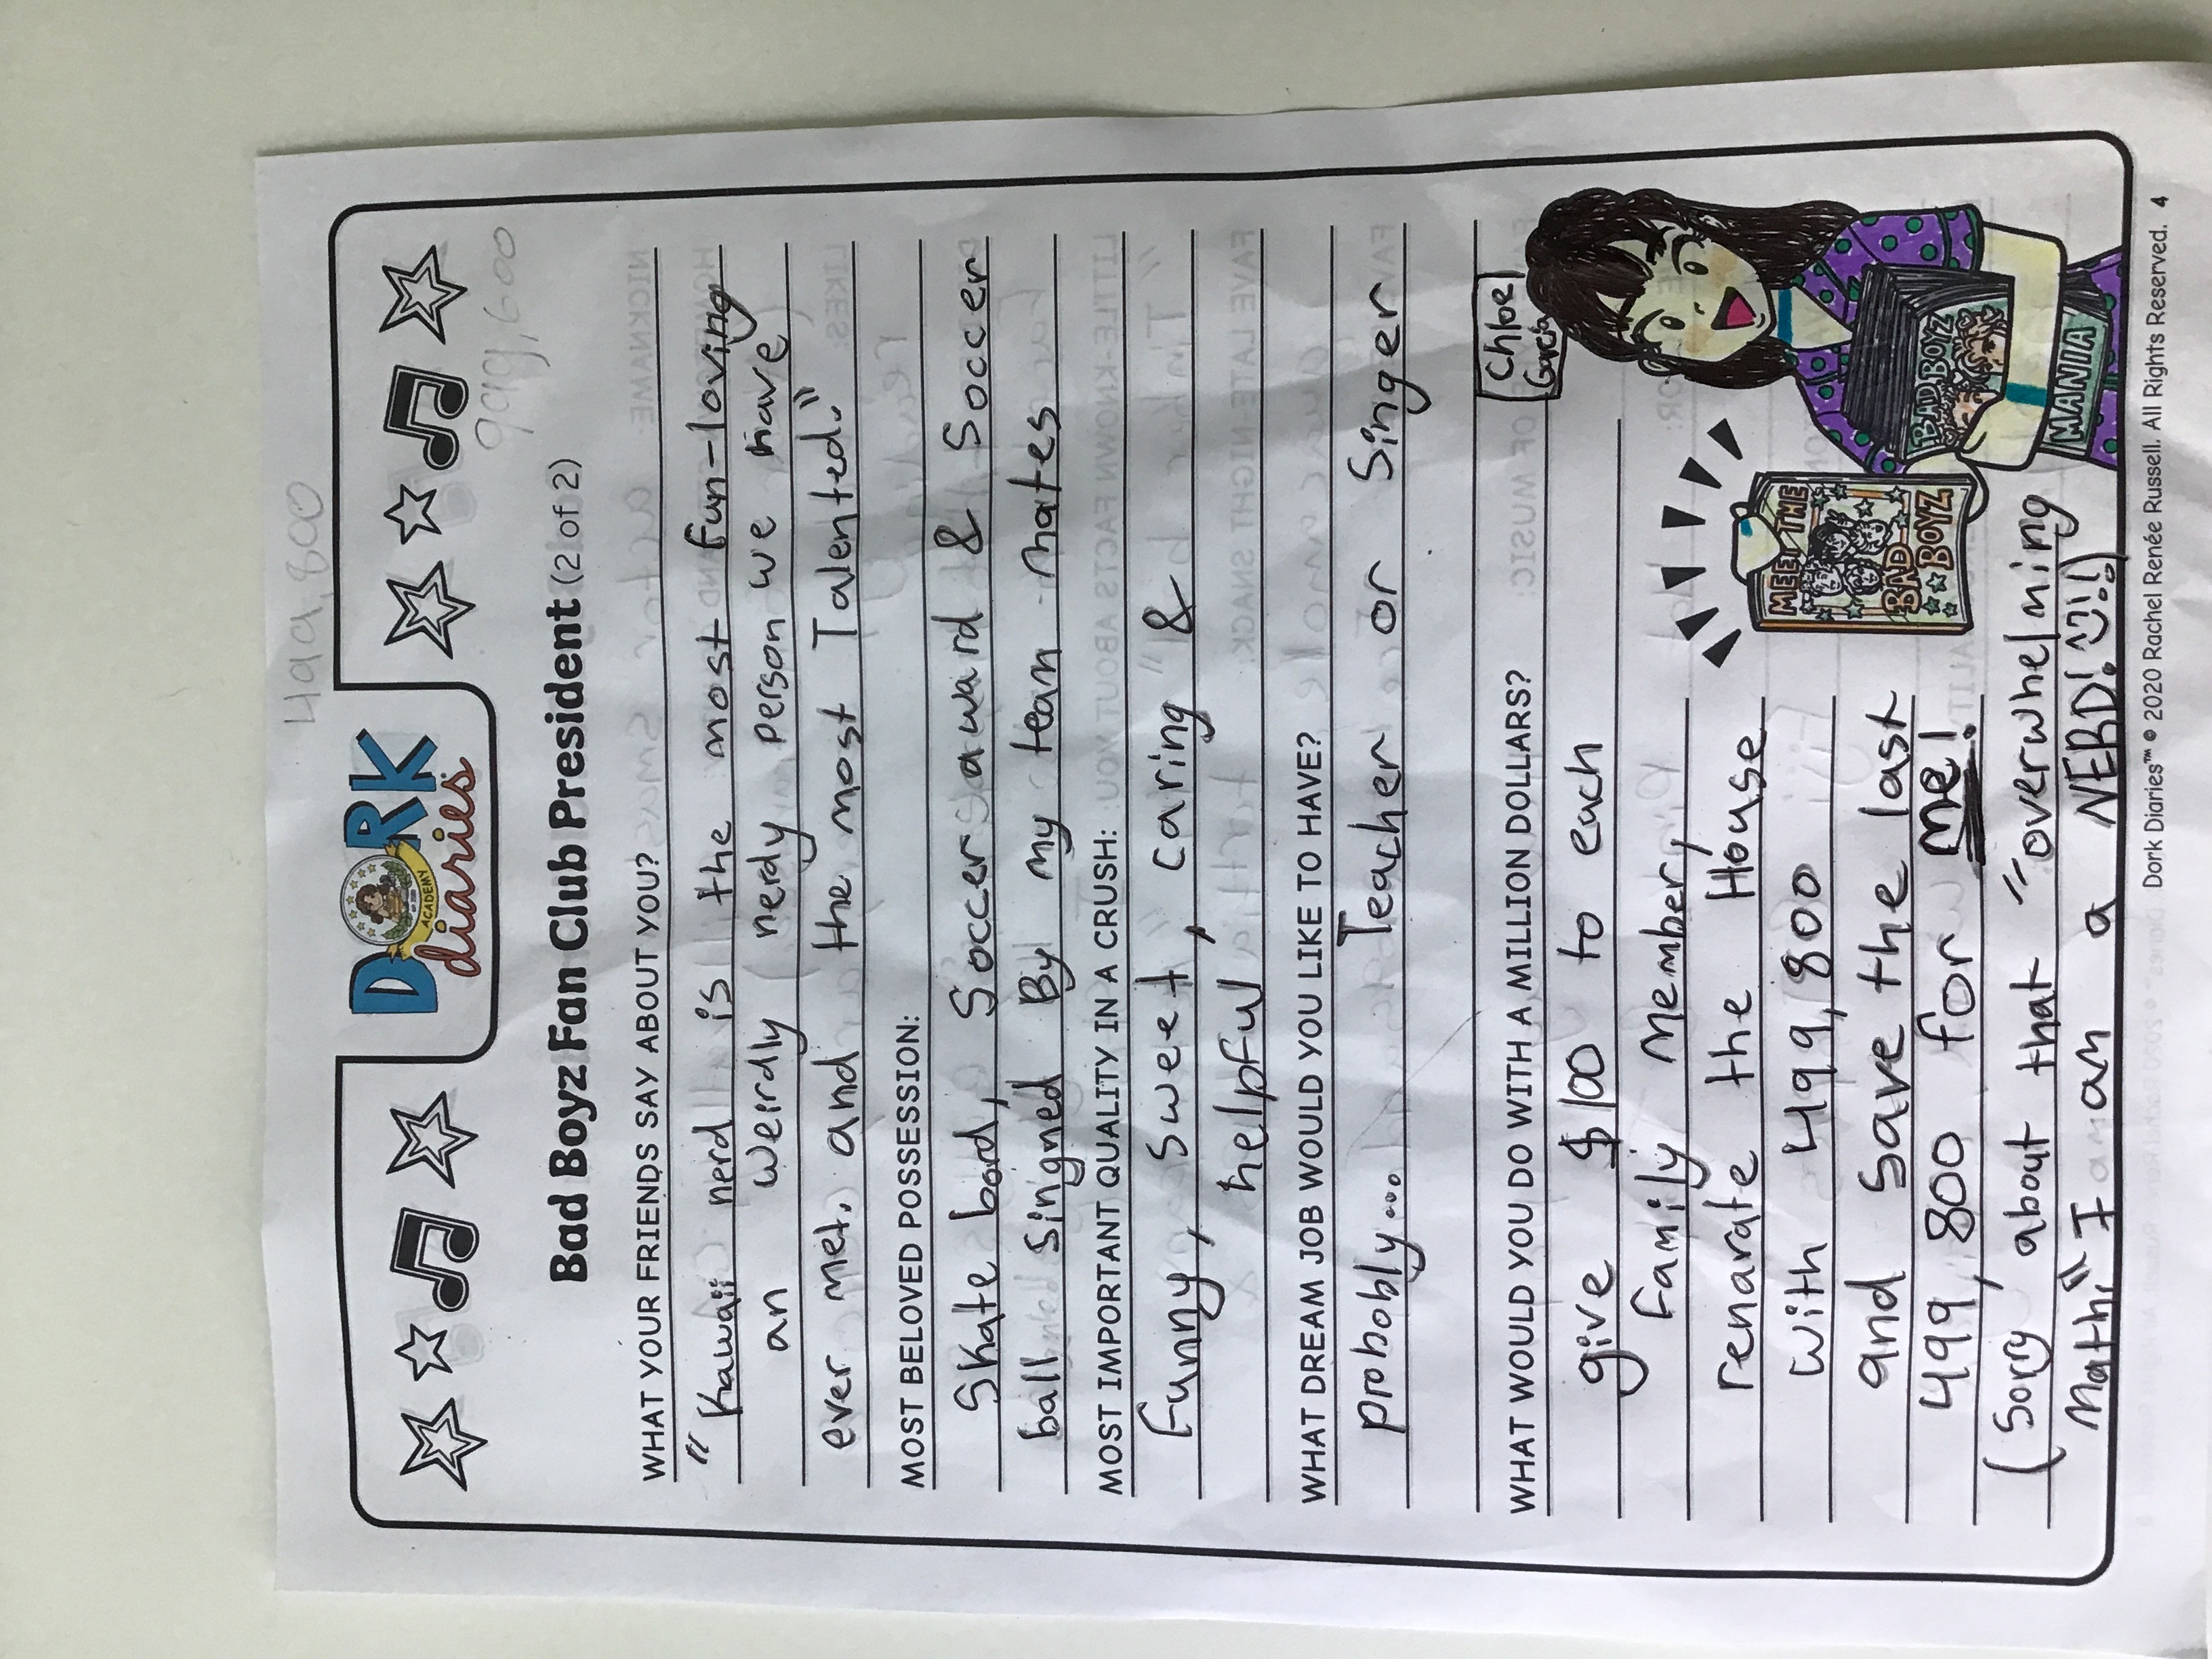 499,800
DORK
diaries
ACADEMY
999,600
Bad Boyz Fan Club President (2 of 2)
WHAT YOUR FRIENDS SAY ABOUT YOU?
"Kawaii nerd is the most fun-loving
an weirdly nerdy person we have
ever met, and the most Talented."
MOST BELOVED POSSESSION:
Skate bord, Soccer award & Soccer
ball singned By my team mates
MOST IMPORTANT QUALITY IN A CRUSH:
Funny, Sweet, caring &
helpful
WHAT DREAM JOB WOULD YOU LIKE TO HAVE?
probobly... Teacher or Singer
WHAT WOULD YOU DO WITH A MILLION DOLLARS?
Chloe
Garcia
give $100 to each
Family Member,
renarate the House
with 499,800
and save the last
499,800 for me!
(Sorry about that "overwhelming
Math," I am a NERD! !!)
MEET THE
BAD
BOYZ
BAD BOYZ
MANIA
Dork Diaries™ © 2020 Rachel Renée Russell. All Rights Reserved. 4